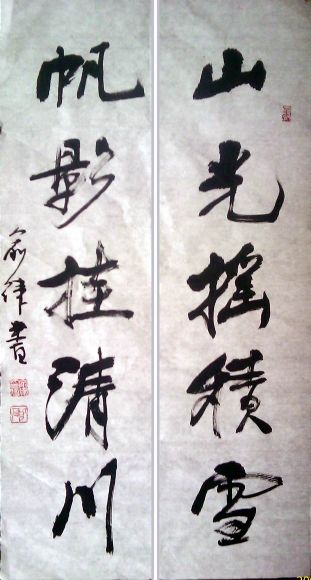 山光摇積雪
帆影挂清川
俞律書